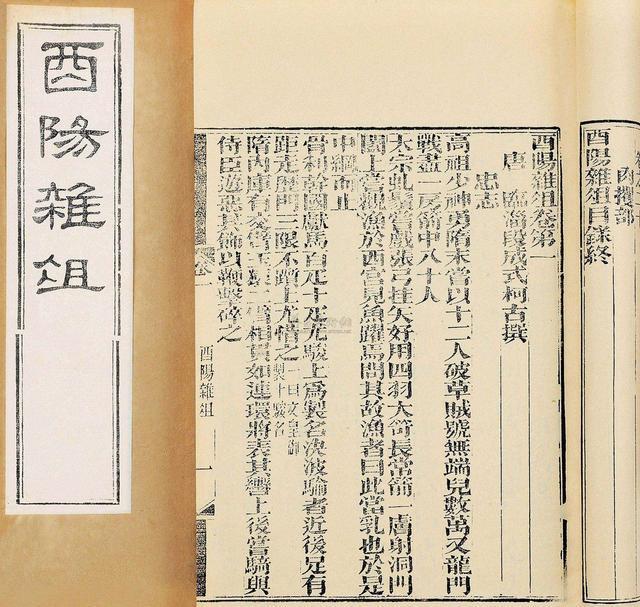 酉陽雜俎
肉攫部
酉陽雜俎目錄終
酉陽雜俎卷第一
唐 臨淄段成式柯古撰
忠志
高祖少神勇隋末嘗以十二人破草賊號無端兒數萬又龍門
戰盡一房箭中八十人
太宗虬鬚嘗戲張弓挂矢好用四羽大笴長常箭一膚射洞門
闔上嘗觀漁於西宮見魚躍焉問其故漁者曰此當乳也於是
中綱而止
骨利幹國獻馬百疋十疋尤駿上爲製名決波騟者近後足有
距走歷門三限不躓上尤惜之一曰文皇御製十駿名
隋內庫有交臂玉猨二臂相貫如連環將表其轡上後嘗騎與
侍臣遊惡其飾以鞭擊碎之
酉陽雜俎 一